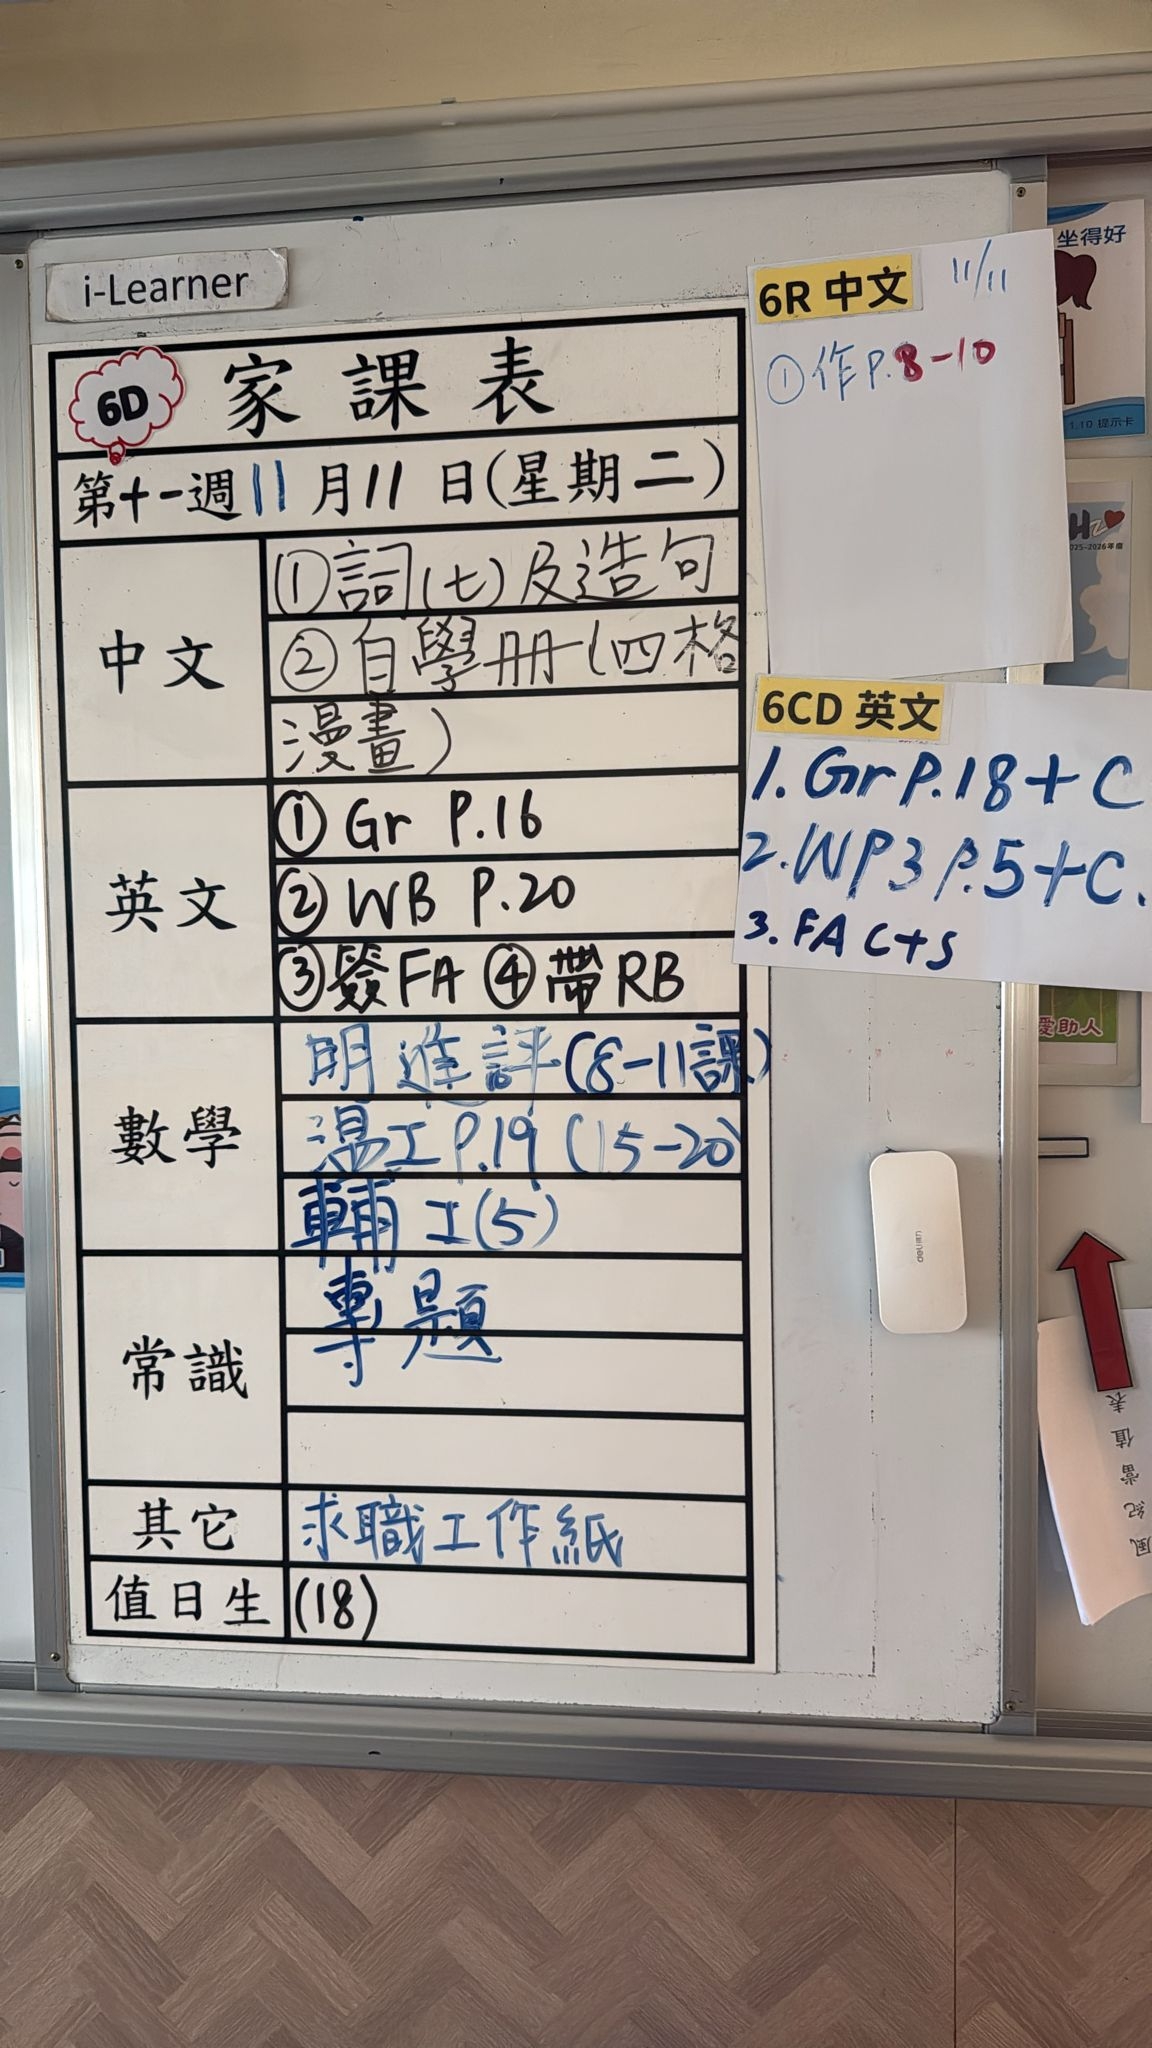 i-Learner
6D 家課表
第十一週 11月11日(星期二)
中文
①詞(七)及造句
②自學册(四格
漫畫)
英文
① Gr P.16
② WB P.20
③簽FA ④帶RB
數學
明進評(8-11課)
溫工P.19 (15-20)
輔工(5)
常識
專題
其它
求職工作紙
值日生
(18)
6R 中文
11/11
①作P.8-10
6CD 英文
1. Gr P.18+C
2. WP3 P.5+C.
3. FA C+S
坐得好
1.10 提示卡
025-2026年度
愛助人
deli
風紀當值表